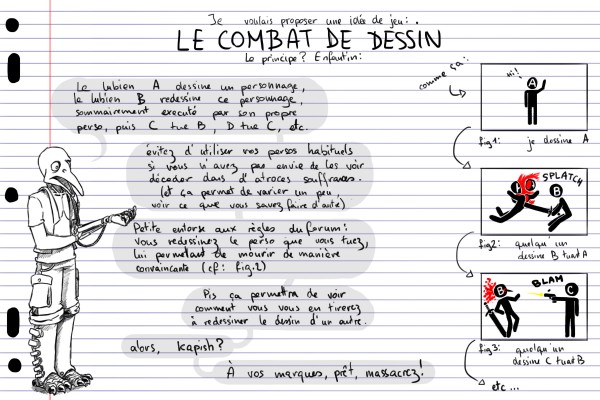 Je voulais proposer une idée de jeu:
LE COMBAT DE DESSIN
Le principe? Enfantin:
Le lubien A dessine un personnage,
le lubien B redessine ce personnage,
sommairement executé par son propre
perso, puis C tue B, D tue C, etc.
évitez d'utiliser vos persos habituels
si vous n'avez pas envie de les voir
décéder dans d'atroces souffrances.
(et ça permet de varier un peu,
voir ce que vous savez faire d'autre)
Petite entorse aux règles du forum:
vous redessinez le perso que vous tuez,
lui permettant de mourir de manière
convaincante (cf: fig.2)
Pis ça permettra de voir
comment vous vous en tirerez
à redessiner le dessin d'un autre.
alors, kapish?
À vos marques, prêt, massacrez!
comme ça:
hi!
A
fig1: je dessine A
SPLATCH
A
B
fig2: quelqu'un
dessine B tuant A
BLAM
B
C
fig3: quelqu'un
dessine C tuant B
etc...